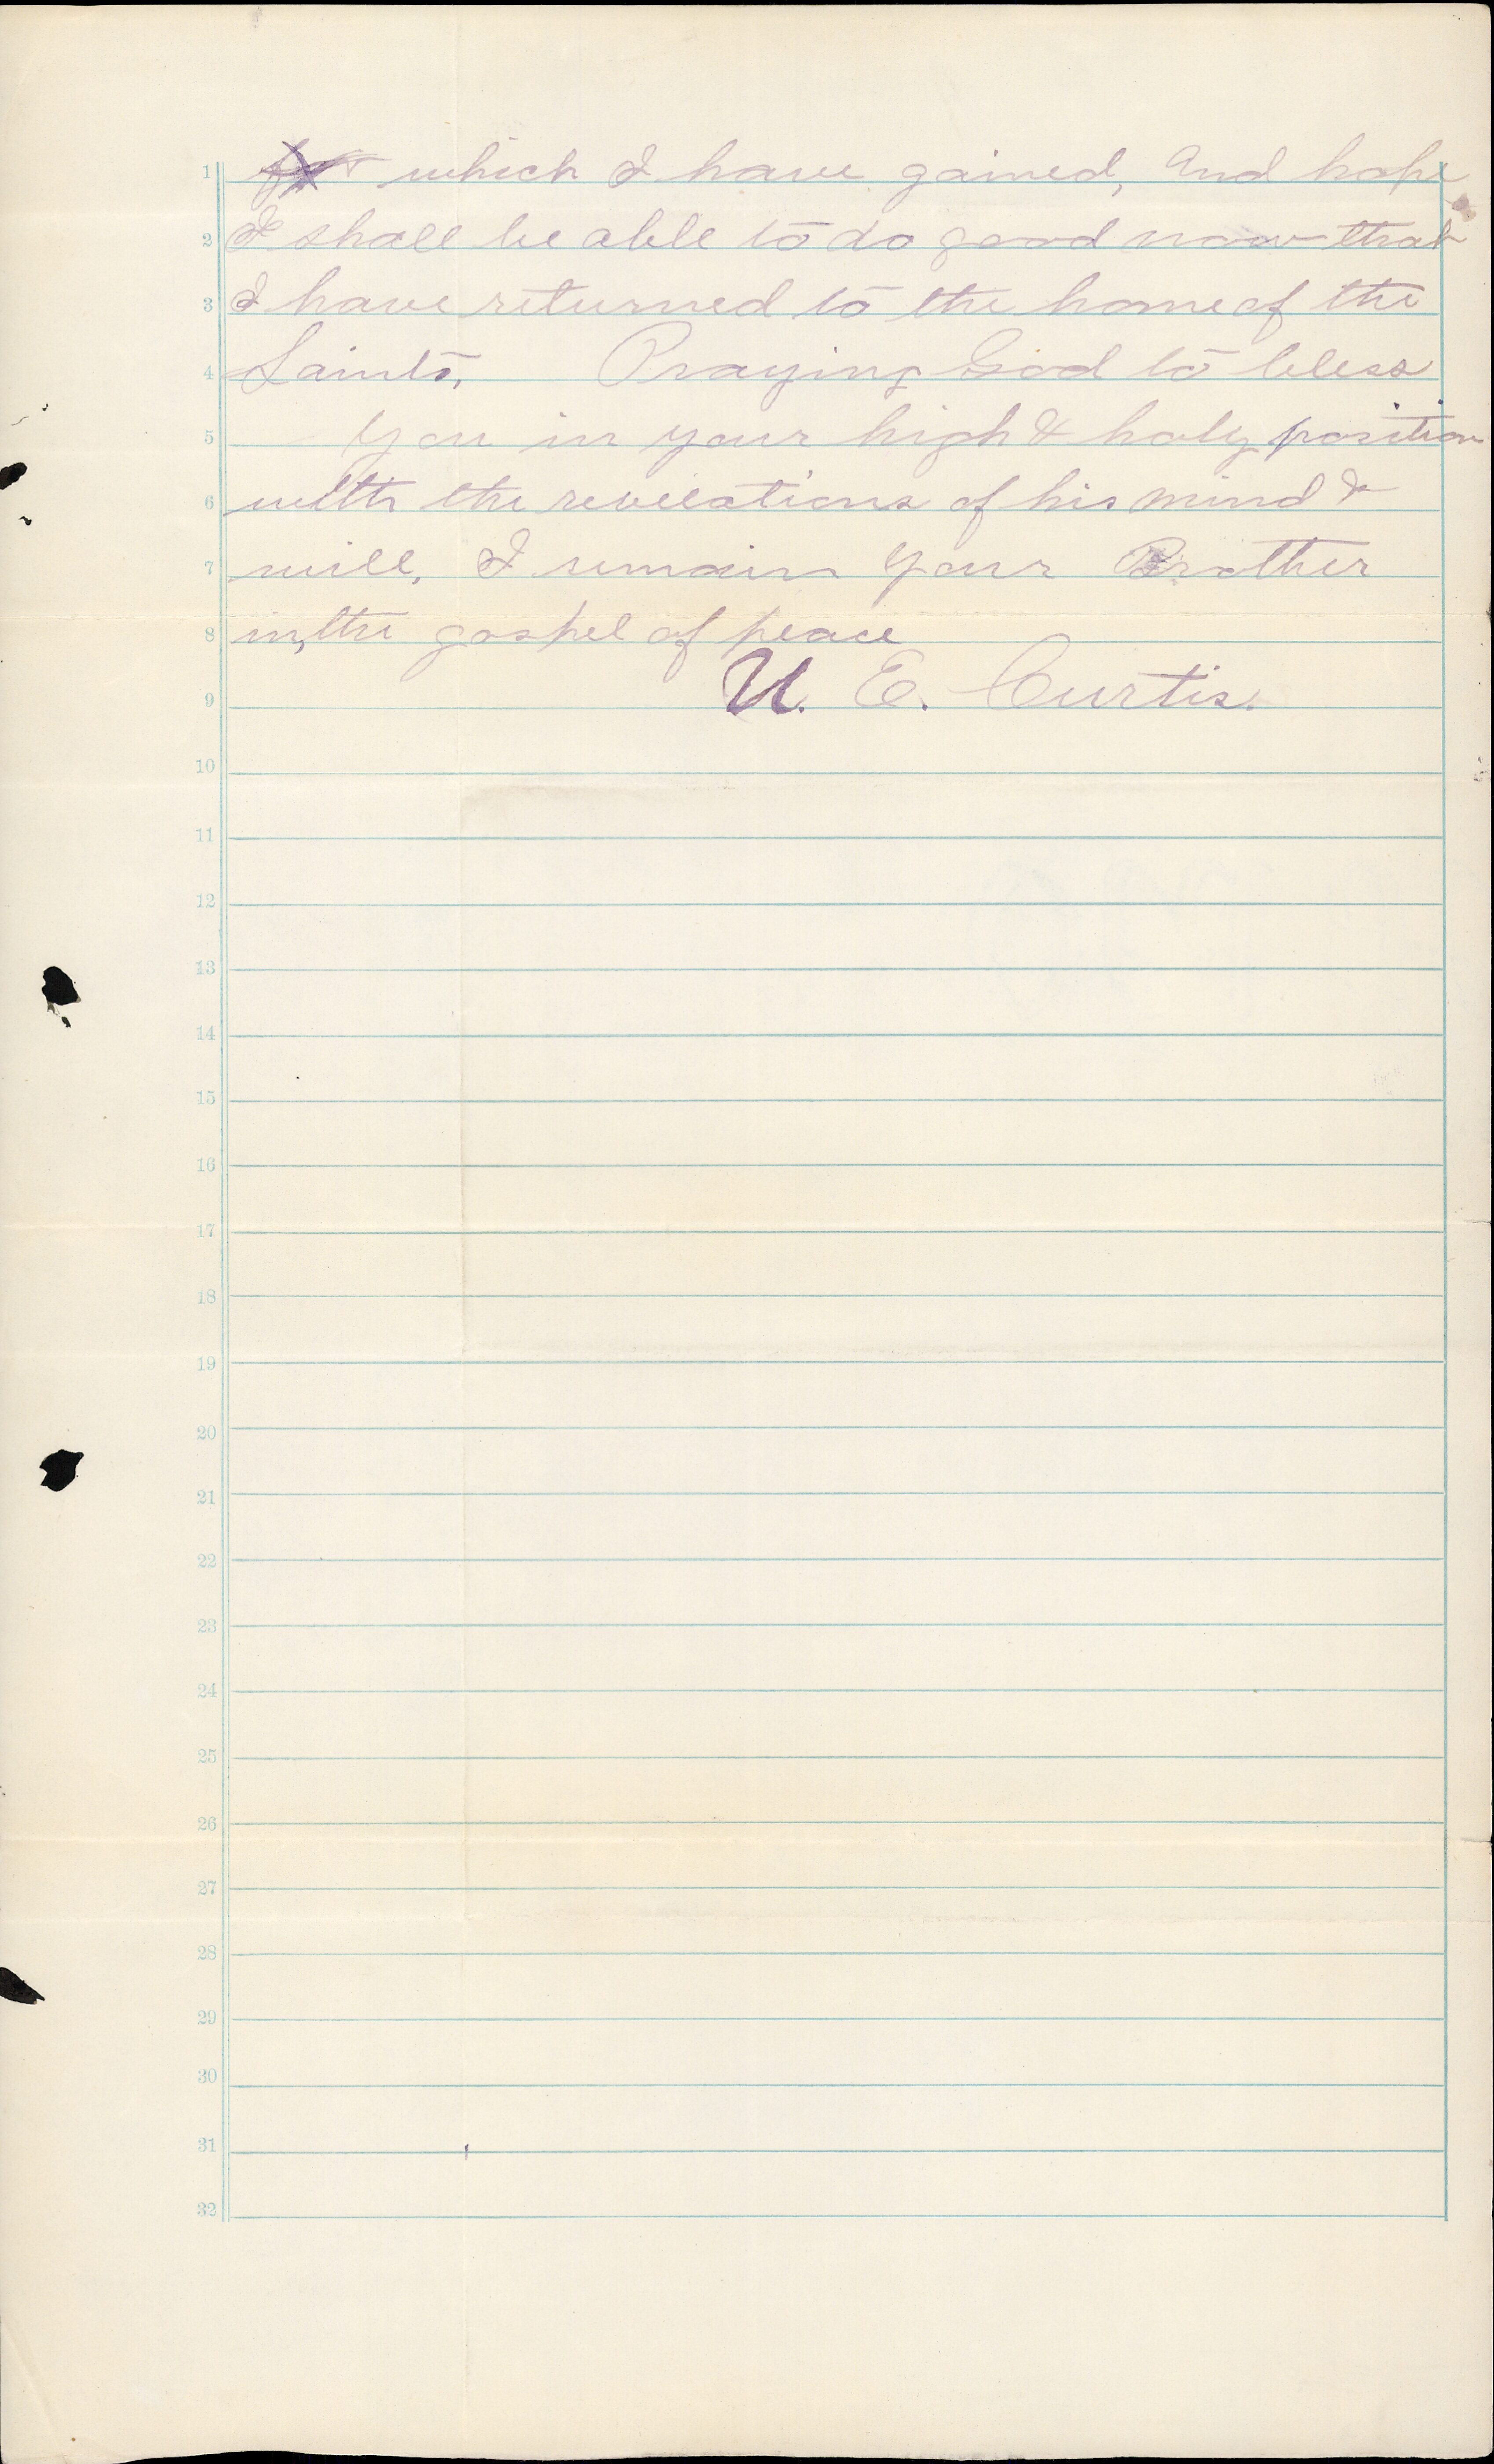 1 which I have gained, And hope
2 I shall be able to do good now that
3 I have returned to the home of the
4 Saints. Praying God to bless
5 You in your high & holy position
6 with the revelations of his mind &
7 will, I remain Your Brother
8 in, the gospel of peace
9 U. E. Curtis.
10
11
12
13
14
15
16
17
18
19
20
21
22
23
24
25
26
27
28
29
30
31
32